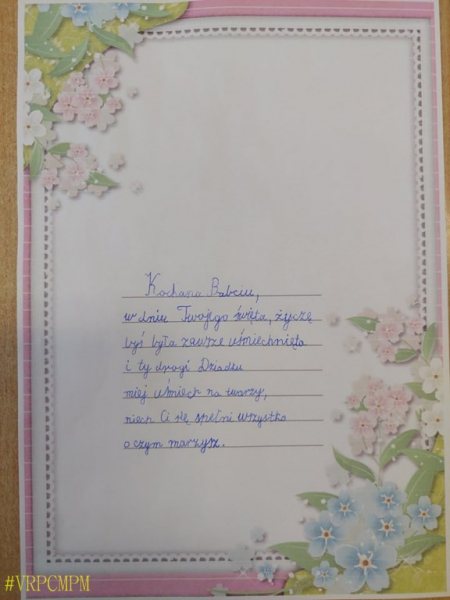 Kochana Babciu,
w dniu Twojego święta, życzę
byś była zawsze uśmiechnięta
i ty drogi Dziadku
miej uśmiech na twarzy,
niech Ci się spełni wszystko
o czym marzysz.
#VRPCMPM